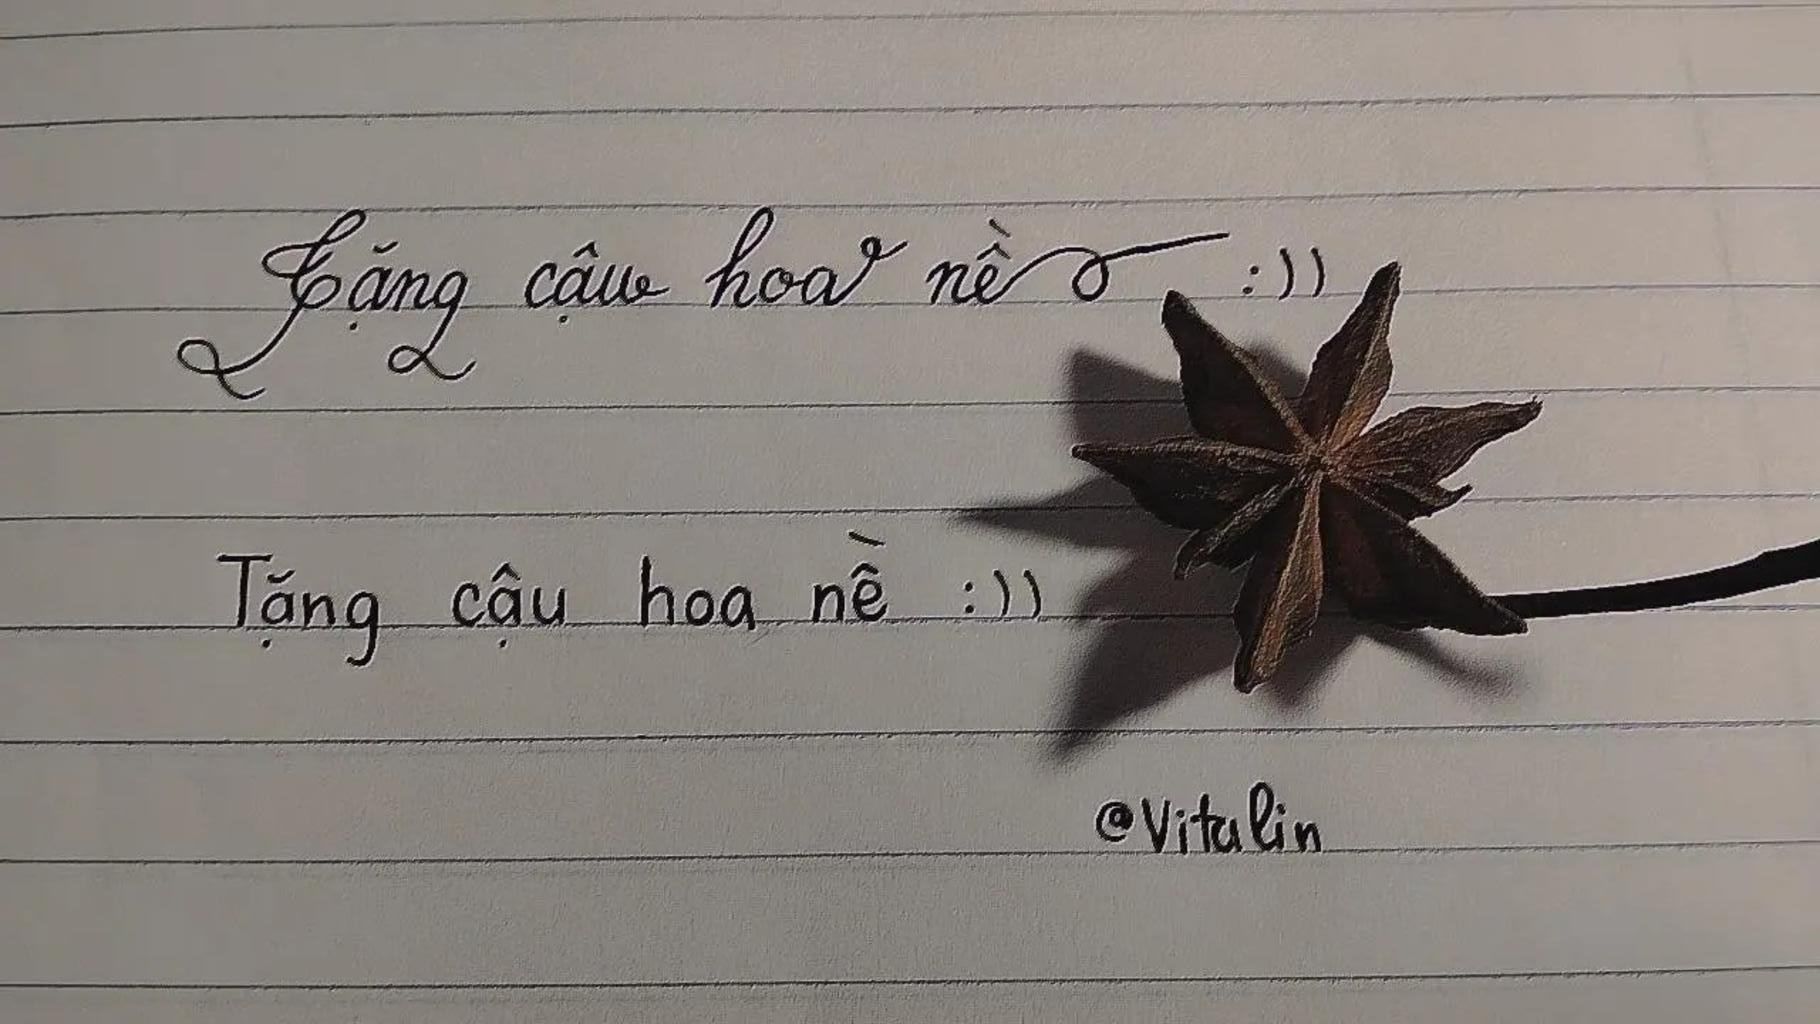 Tặng cậu hoa nề :))
Tặng cậu hoa nề :))
@Vitalin